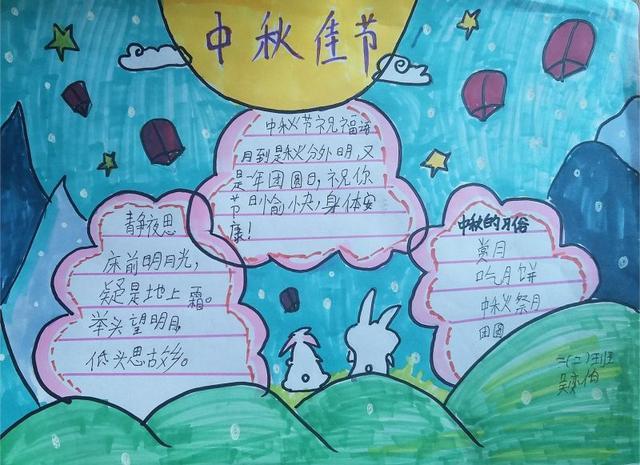 中秋佳节
中秋节祝福语
月到是秋分外明,又
是一年团圆日,祝你
节日愉快,身体安
康!
静夜思
床前明月光,
疑是地上霜。
举头望明月
低头思故乡。
中秋的习俗
赏月
吃月饼
中秋祭月
团圆
二(二)班